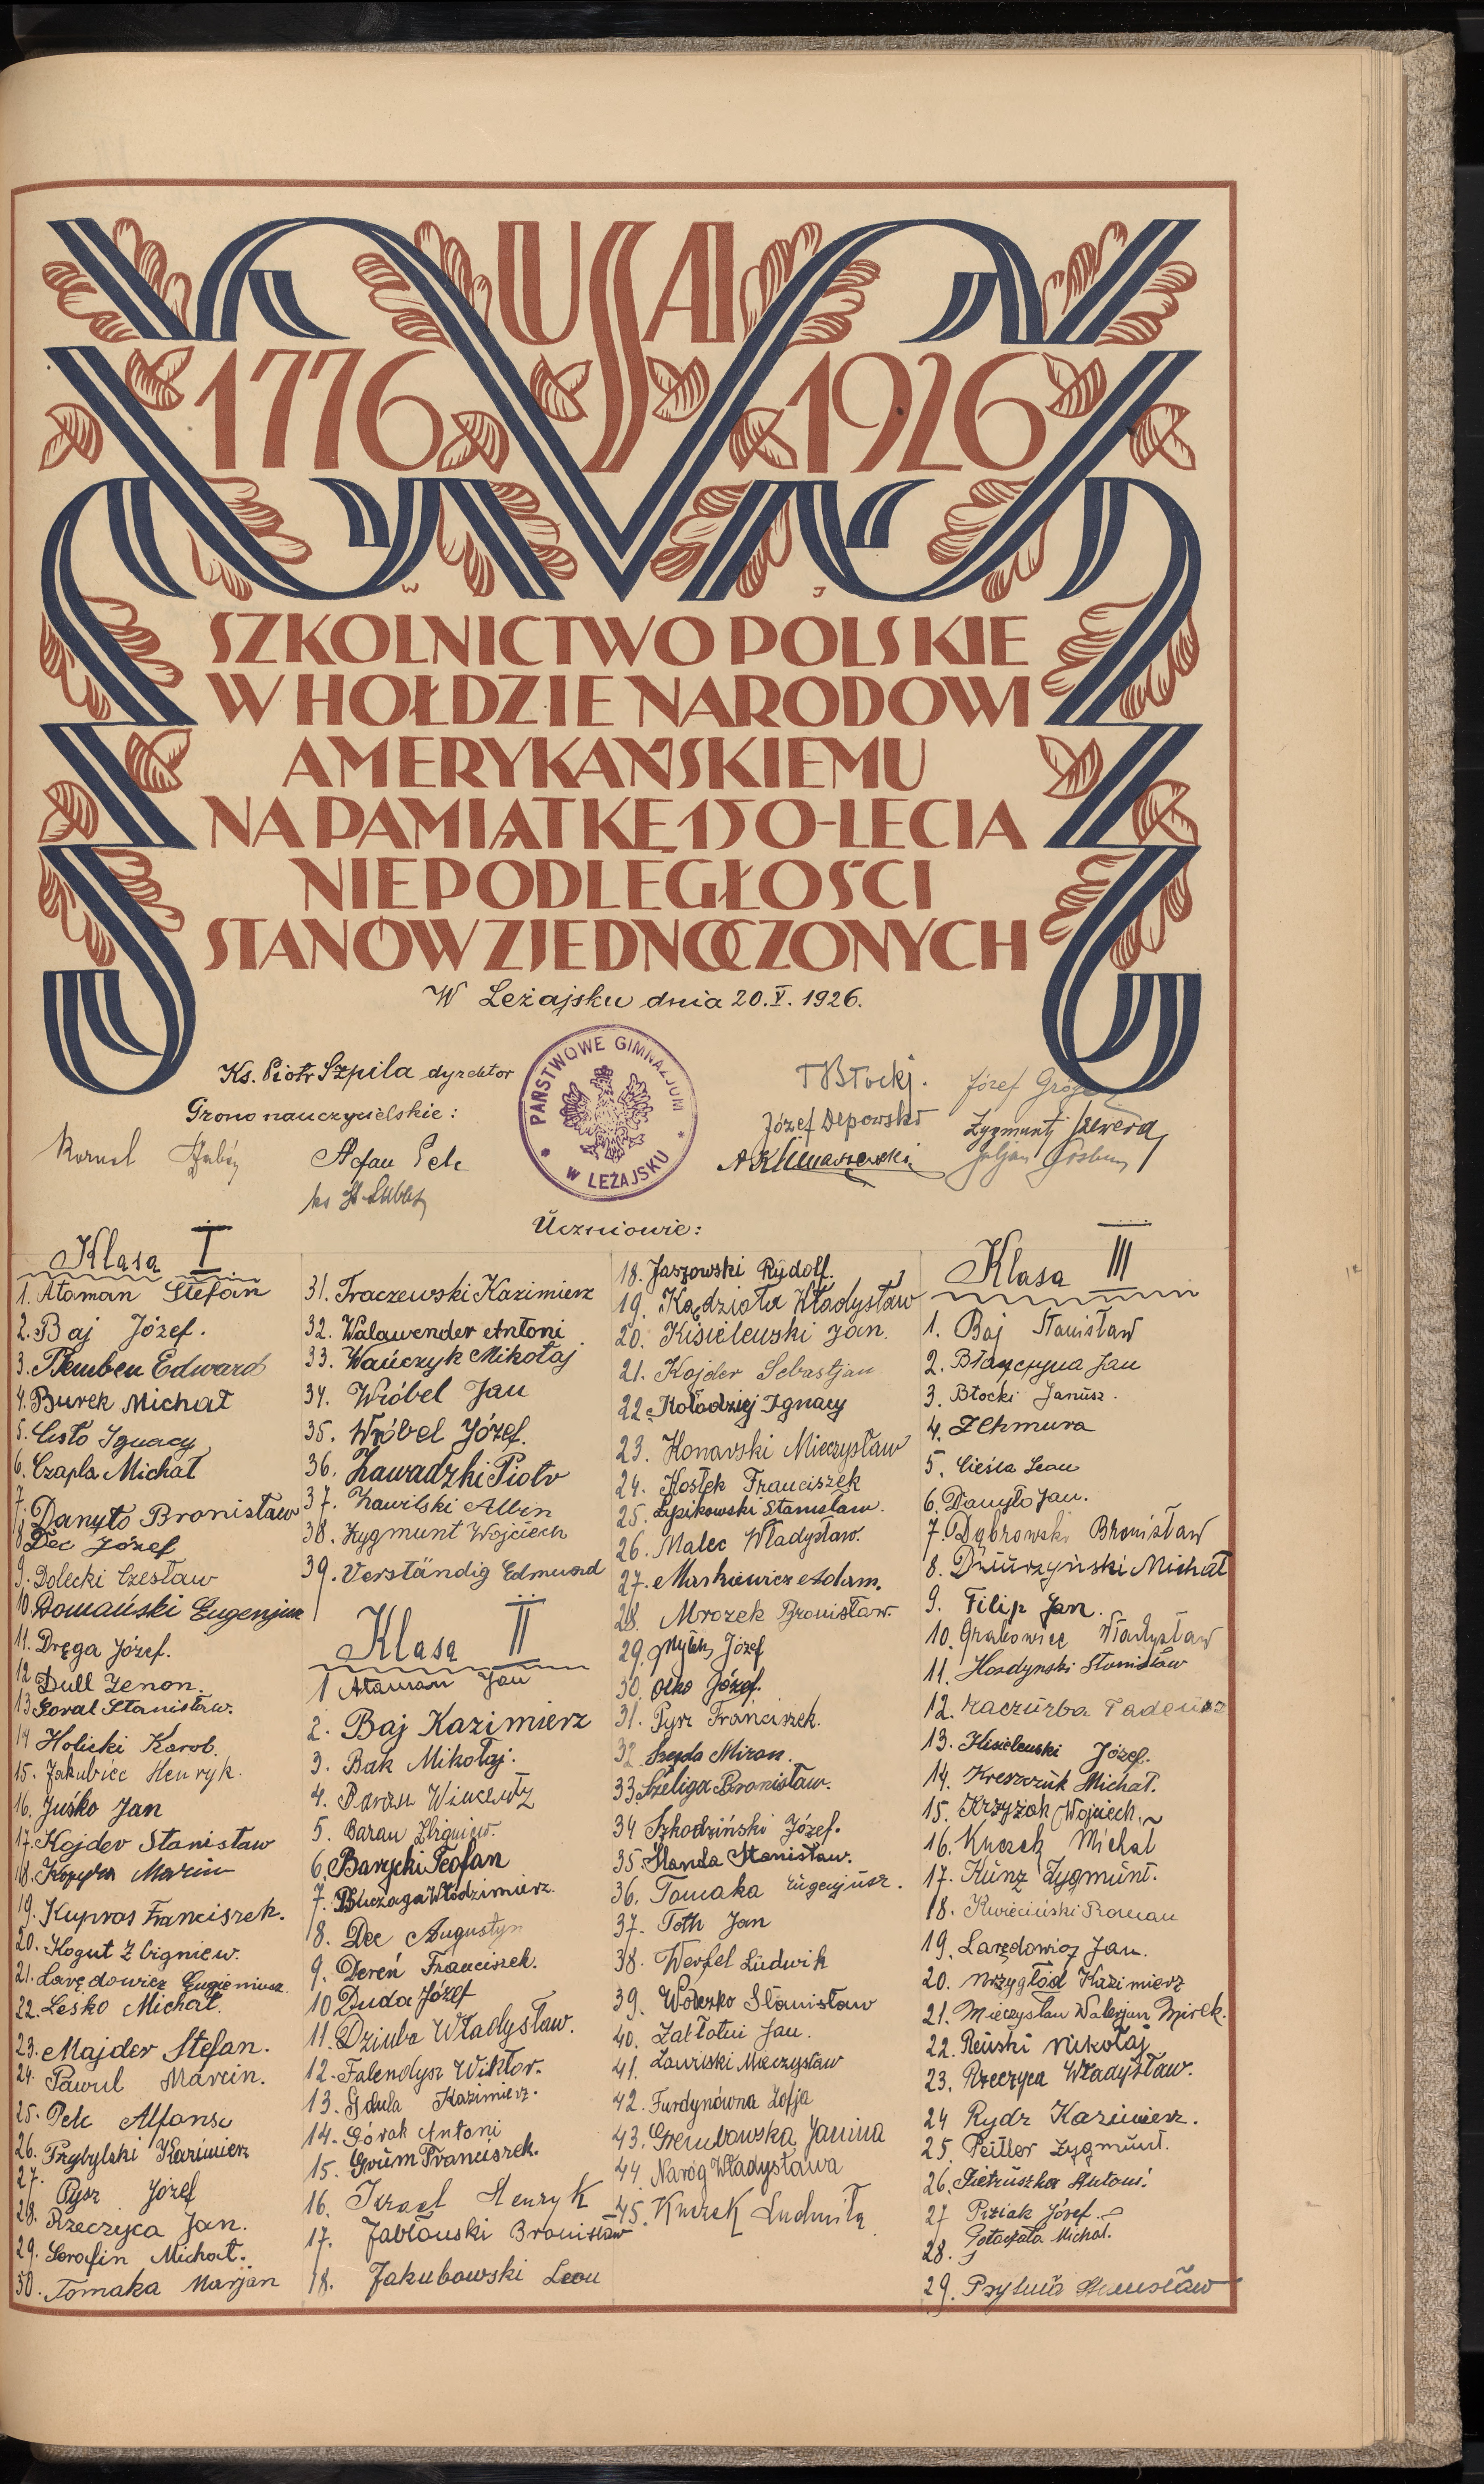 USA
1776 1926
W J
SZKOLNICTWO POLSKIE
W HOŁDZIE NARODOWI
AMERYKAŃSKIEMU
NA PAMIĄTKĘ 150-LECIA
NIEPODLEGŁOŚCI
STANÓW ZJEDNOCZONYCH
W Leżajsku dnia 20.V. 1926.
Ks. Piotr Szpila dyrektor
Grono nauczycielskie:
PAŃSTWOWE GIMNAZJUM
* W LEŻAJSKU *
Kornel
Stefan Pelc
ks St.
TBłocki.
Józef Depowski
A Klimaszewski
Józef
Zygmunt Szewera
Juljan
Uczniowie:
Klasa I
1. Ataman Stefan
2. Baj Józef.
3. Bemben Edward
4. Burek Michał
5. Cisło Ignacy
6. Czapla Michał
7. Danyło Bronisław
8. Dec Józef
9. Dolecki Czesław
10. Domański Eugenjusz
11. Dręga Józef.
12 Dull Zenon.
13 Goral Stanisław.
14 Holicki Karol.
15. Jakubiec Henryk.
16. Juśko Jan
17. Kojder Stanisław
18. Kopyra Marcin
19. Kupras Franciszek.
20. Kogut Zbigniew.
21. Larędowicz Eugieniusz.
22. Leśko Michał.
23. Majder Stefan.
24. Pawul Marcin.
25. Pelc Alfons
26. Przybylski Kazimierz
27. Pysz Józef
28. Rzeczyca Jan.
29. Serafin Michał.
30. Tomaka Marjan
31. Traczewski Kazimierz
32. Walawender Antoni
33. Wańczyk Mikołaj
34. Wróbel Jan
35. Wróbel Józef.
36. Zawadzki Piotr
37. Zawilski Albin
38. Zygmunt Wojciech
39. Verständig Edmund
Klasa II
1 Ataman Jan
2. Baj Kazimierz
3. Bak Mikołaj.
4. Baran Wincenty
5. Baran Zbigniew.
6. Barycki Teofan
7. Buczaga Włodzimierz.
8. Dec Augustyn
9. Dereń Franciszek.
10 Duda Józef
11. Dziuba Władysław.
12. Falendysz Wiktor.
13. Gdula Kazimierz.
14. Górak Antoni
15. Grüm Franciszek.
16. Israel Henryk
17. Jabłoński Bronisław
18. Jakubowski Leon
18. Jaszowski Rudolf.
19. Kądziołа Władysław
20. Kisielewski Jan.
21. Kojder Sebastjan
22. Kołodziej Ignacy
23. Konarski Mieczysław
24. Kostek Franciszek
25. Lipikowski Stanisław.
26. Malec Władysław.
27. Markiewicz Adam.
28. Mrozek Bronisław.
29. Józef
30. Olko Józef.
31. Pysz Franciszek.
32. Szajda Miron.
33. Szeliga Bronisław.
34 Szkodziński Józef.
35. Ślanda Stanisław.
36. Tomaka Eugenjusz.
37. Toth Jan
38. Werfel Ludwik
39. Wołczko Stanisław
40. Załłotni Jan.
41. Zawiłski Mieczysław
42. Furdynówna Zofja
43. Grembowska Janina
44. Naróg Władysława
45. Kuczek Ludmiła
Klasa III
1. Baj Stanisław
2. Błażczyna Jan
3. Błocki Janusz.
4. Z Chmura
5. Cieśla Leon
6. Danyło Jan.
7. Dąbrowski Bronisław
8. Dziurzyński Michał
9. Filip Jan.
10. Grabowiec Władysław
11. Hordynski Stanisław
12. Kaczurba Tadeusz
13. Kisielewski Józef.
14. Kreszczuk Michał.
15. Krzyżak Wojciech.
16. Kuczek Michał
17. Künz Zygmunt.
18. Kwieciński Roman
19. Larędowicz Jan.
20. Mrzygłód Kazimierz
21. Mieczysław Walerjan Mirek.
22. Reński Mikołaj
23. Rzeczyca Władysław.
24 Rydz Kazimierz.
25. Peitler Zygmunt.
26. Pietruszka Antoni.
27 Piziak Józef.
28. Potaczała Michał.
29. Stanisław